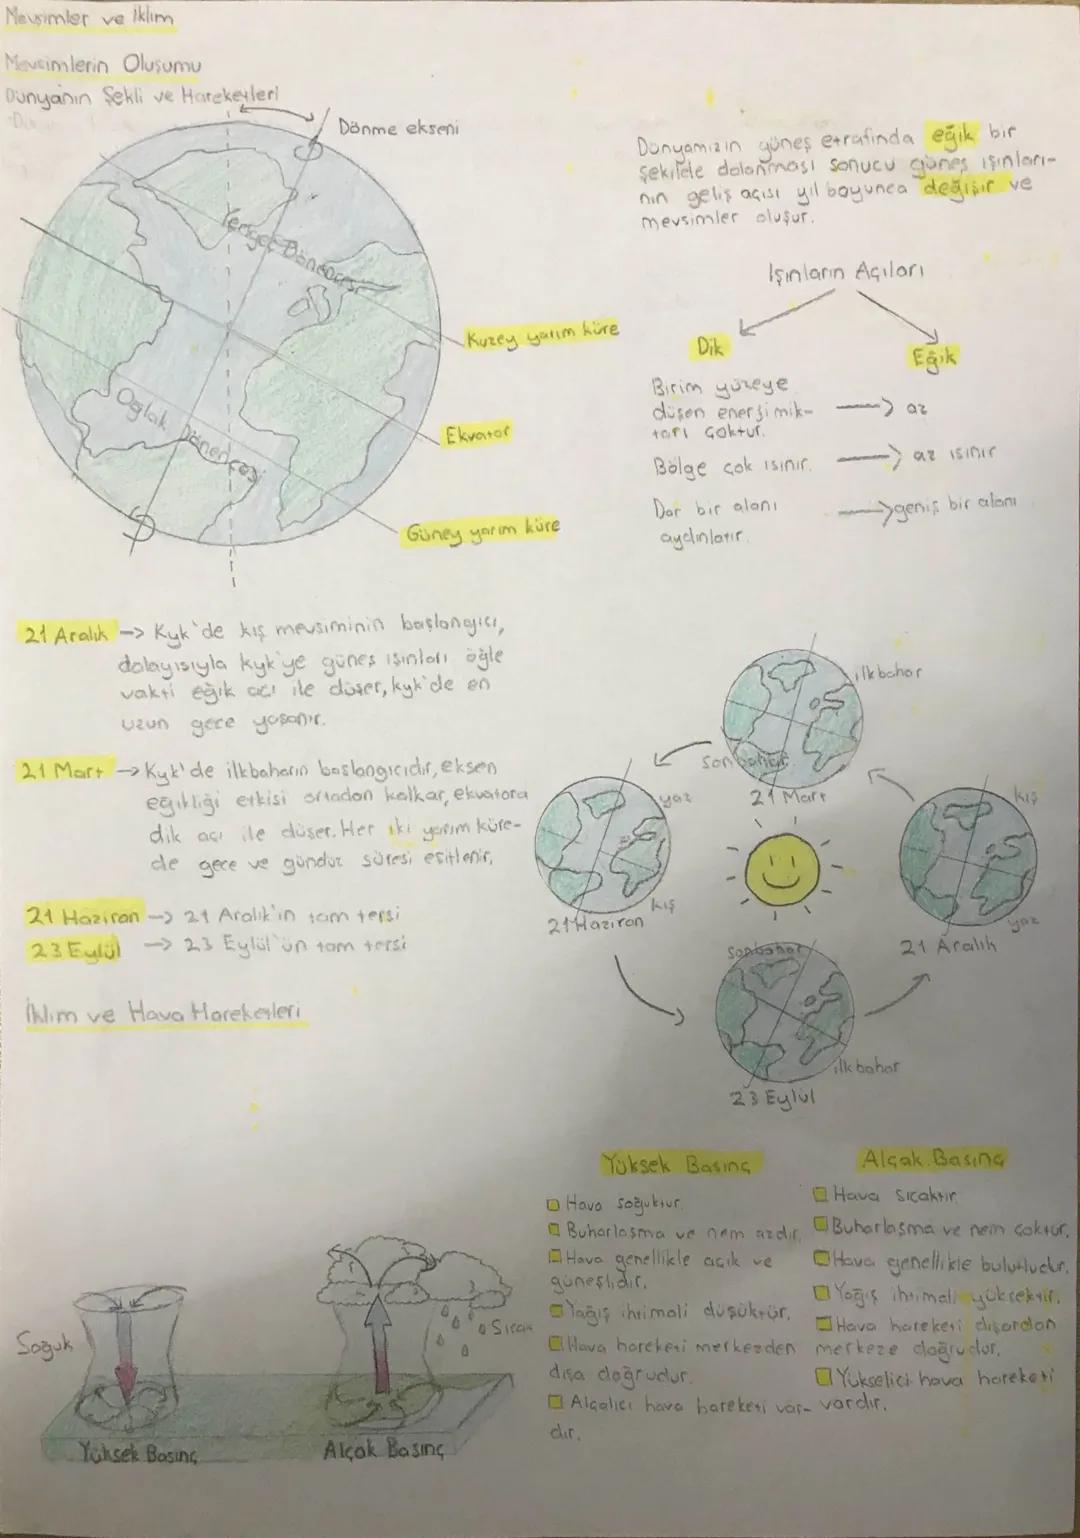 Mevsimler ve İklim
Mevsimlerin Oluşumu
Dünyanın Şekli ve Hareketleri
Dönme ekseni
Yengeç Dönencesi
Oğlak Dönencesi
Kuzey yarım küre
Ekvator
Güney yarım küre
Dünyamızın güneş etrafında eğik bir
şekilde dolanması sonucu güneş ışınları-
nın geliş açısı yıl boyunca değişir ve
mevsimler oluşur.
Işınların Açıları
Dik
Eğik
Birim yüzeye
düşen enerji mik-
tarı çoktur.
-> az
Bölge çok ısınır.
-> az ısınır
Dar bir alanı
aydınlatır.
-> geniş bir alanı
21 Aralık -> Kyk'de kış mevsiminin başlangıcı,
dolayısıyla kyk'ye güneş ışınları öğle
vakti eğik açı ile düşer, kyk'de en
uzun gece yaşanır.
21 Mart -> Kyk'de ilkbaharın başlangıcıdır, eksen
eğikliği etkisi ortadan kalkar, ekvatora
dik açı ile düşer. Her iki yarım küre-
de gece ve gündüz süresi eşitlenir.
21 Haziran -> 21 Aralık'ın tam tersi
23 Eylül -> 23 Eylül'ün tam tersi
ilkbahar
sonbahar
21 Mart
yaz
kış
21 Haziran
kış
yaz
21 Aralık
sonbahar
ilkbahar
23 Eylül
İklim ve Hava Hareketleri
Soğuk
Yüksek Basınç
Sıcak
Alçak Basınç
Yüksek Basınç
Hava soğuktur.
Buharlaşma ve nem azdır.
Hava genellikle açık ve
güneşlidir.
Yağış ihtimali düşüktür.
Hava hareketi merkezden
dışa doğrudur.
Alçalıcı hava hareketi var-
dır.
Alçak Basınç
Hava sıcaktır.
Buharlaşma ve nem çoktur.
Hava genellikle bulutludur.
Yağış ihtimali yüksektir.
Hava hareketi dışardan
merkeze doğrudur.
Yükselici hava hareketi
vardır.